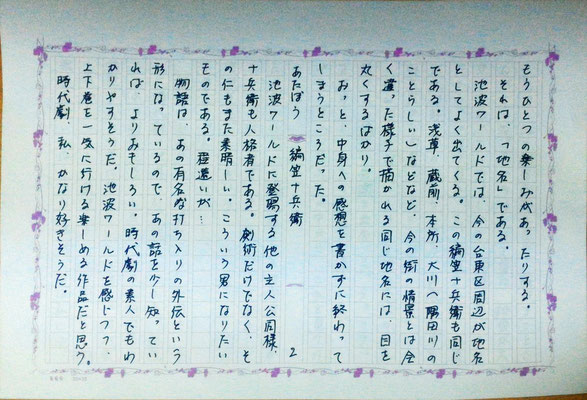 もうひとつの楽しみがあったりする。
それは、「地名」である。
池波ワールドでは、今の台東区周辺が地名
としてよく出てくる。この編笠十兵衛も同じ
である。浅草、蔵前、本所、大川(隅田川の
ことらしい)などなど、今の街の情景とは全
く違った様子で描かれる同じ地名には、目を
丸くするばかり。
おっと、中身への感想を書かずに終わって
しまうところだった。
あたぼう 編笠十兵衛 2
池波ワールドに登場する他の主人公同様、
十兵衛も人格者である。剣術だけでなく、そ
の仁もまた素晴しい。こういう男になりたい
ものである。程遠いが…
物語は、あの有名な打ち入りの外伝という
形になっているので、あの話を少し知ってい
れば、よりおもしろい。時代劇の素人でもわ
かりやすそうだ。池波ワールドを感じつつ、
上下巻を一気に行ける楽しめる作品だと思う。
時代劇 私、かなり好きそうだ。